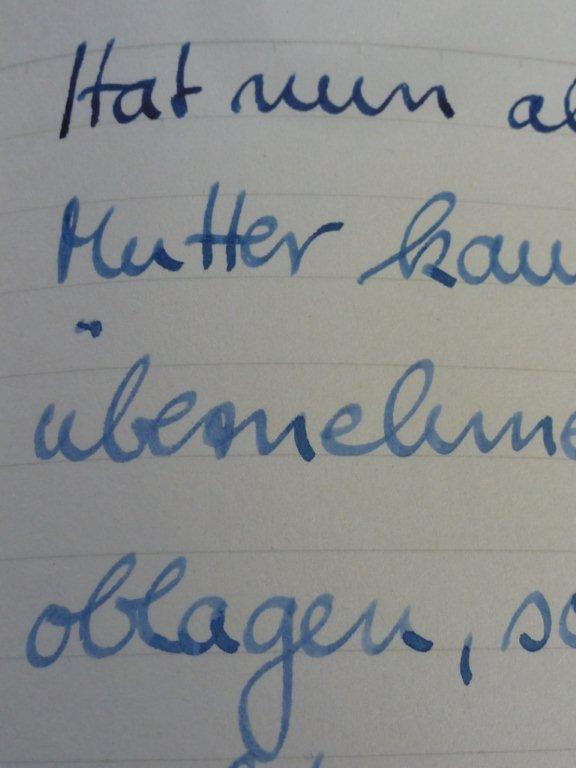 Hat nun al
Mutter kau
übernehme
oblagen, so